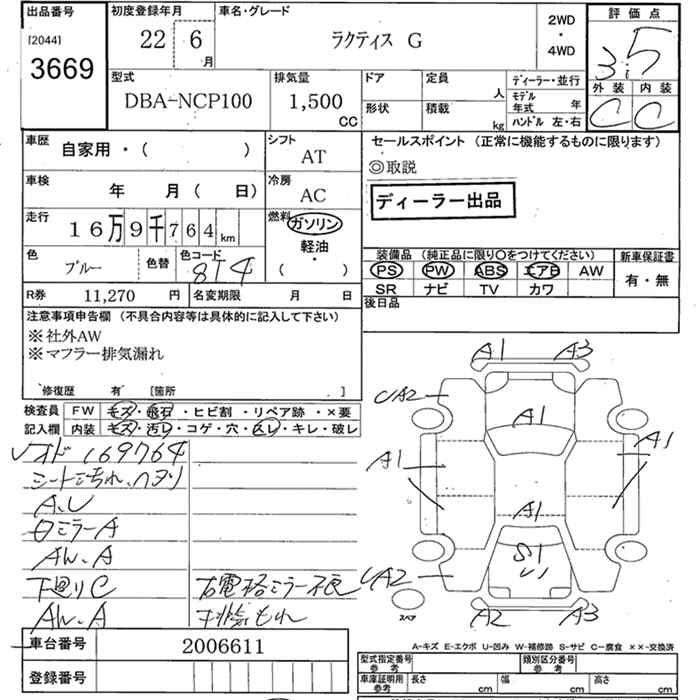 出品番号 初度登録年月 車名・グレード 2WD 評価点
[2044] 22 6 ラクティス G ・ 3.5
3669 月 4WD
型式 排気量 ドア 定員 ディーラー・並行 外装 内装
DBA-NCP100 1,500 人 モデル年式 年 C C
CC 形状 積載 kg ハンドル 左・右
車歴 自家用・( ) シフト AT セールスポイント (正常に機能するものに限ります)
◎取説
車検 年 月( 日) 冷房 AC ディーラー出品
走行 16万9千764km 燃料 ガソリン
軽油・
( )
色 ブルー 色替 色コード 8T4 装備品 (純正品に限り○をつけてください) 新車保証書
PS PW ABS エアB AW 有・無
R券 11,270 円 名変期限 月 日 SR ナビ TV カワ
注意事項申告欄 (不具合内容等は具体的に記入して下さい) 後日品
※社外AW
※マフラー排気漏れ
修復歴 有 [箇所 ]
検査員 FW キズ・飛石・ヒビ割・リペア跡・×要
記入欄 内装 キズ・汚レ・コゲ・穴・スレ・キレ・破レ
169764
A.U
ミラーA
AW.A
下廻りC 右電格ミラー不良
AW.A 排気もれ
A1 A3
A2
A1
A1 A1
A1
S1
U1
A2
A2 A3
スペア
車台番号 2006611
登録番号
A-キズ E-エクボ U-凹み W-補修跡 S-サビ C-腐食 ××-交換済
型式指定番号 参考 類別区分番号 参考
車庫証明用 参考 長さ cm 幅 cm 高さ cm